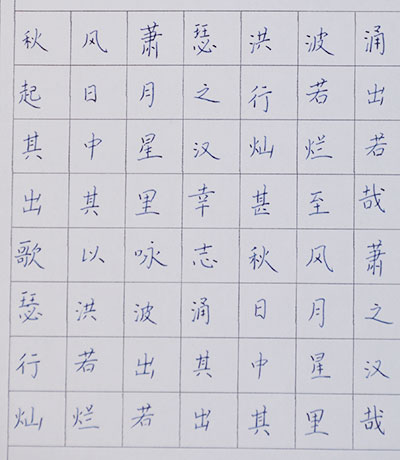 秋风萧瑟洪波涌
起日月之行若出
其中星汉灿烂若
出其里幸甚至哉
歌以咏志秋风萧
瑟洪波涌日月之
行若出其中星汉
灿烂若出其里哉